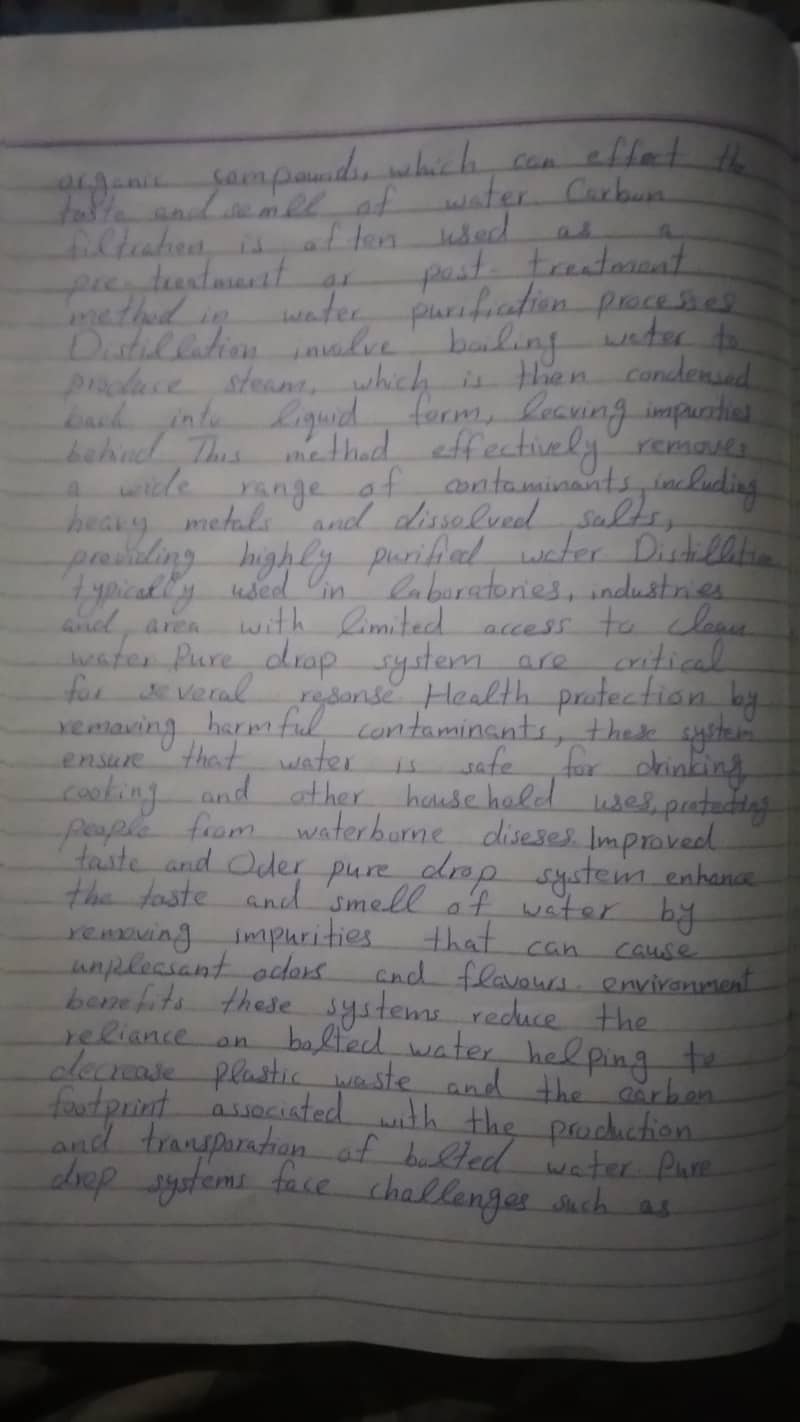 organic compounds, which can effect the
taste and semell of water. Carbon
filtration is often used as a
pre-treatment or post-treatment
method in water purification processes
Distillation involve boiling water to
produce steam, which is then condensed
back into liquid form, leaving impurities
behind. This method effectively removes
a wide range of contaminants, including
heavy metals and dissolved salts,
providing highly purified water Distillation
typically used in laboratories, industries
and area with limited access to clean
water. Pure drop system are critical
for several resonse Health protection by
removing harmful contaminants, these system
ensure that water is safe for drinking,
cooking and other household uses, protecting
people from waterborne diseses. Improved
taste and Oder pure drop system enhance
the taste and smell of water by
removing impurities that can cause
unpleasant odors and flavours. environment
benefits these systems reduce the
reliance on bolted water helping to
decrease plastic waste and the carbon
footprint associated with the production
and transporation of bolted water. Pure
drop systems face challenges such as